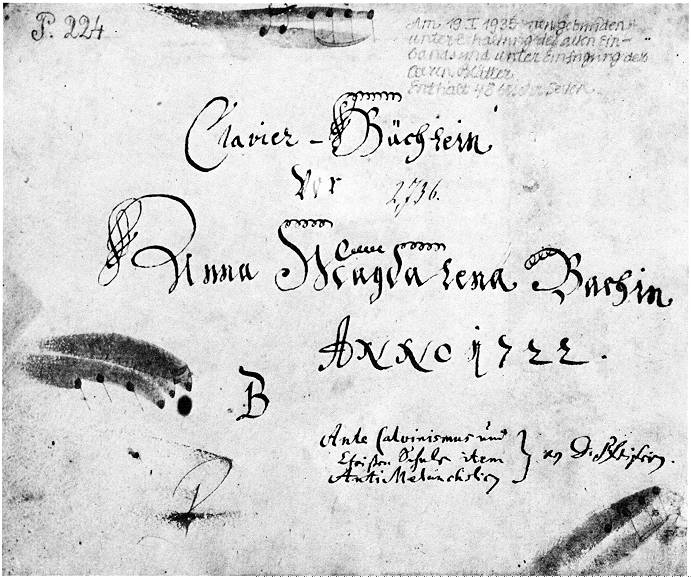 P. 224
Am 19.I.1935 neu gebunden
unter Erhaltung des alten Ein-
bands und unter Einfügung der
leeren Blätter.
Enthält 48 Seiten.
Clavier-Büchlein
vor 2736.
Anna Magdalena Bachin
ANNO 1722.
B
Ante Calvinismus und
Christen Schule item
AntiMelancholicus
von D. Pfeifern.